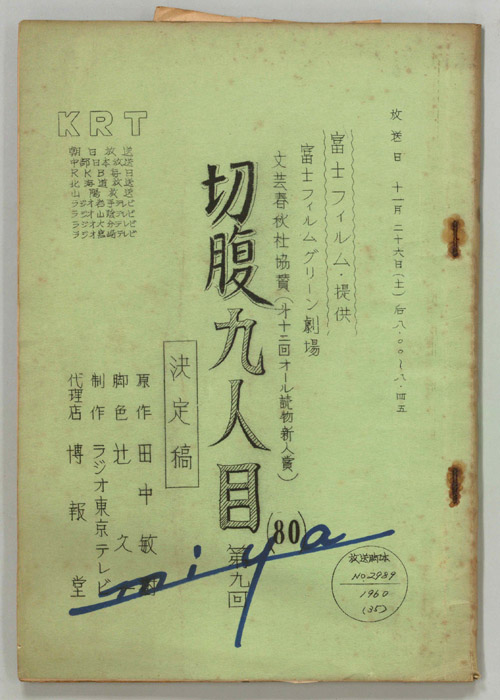 放送日 十一月二十六日(土)后八・〇〇~八・四五
富士フィルム・提供
富士フィルムグリーン劇場
文芸春秋社協賛(才十二回オール読物新人賞)
切腹九人目
(80)
第九回
決定稿
原作 田中敏樹
脚色 辻久一
制作 ラジオ東京テレビ
代理店 博報堂
KRT
朝日放送
中部日本放送
RKB毎日
北海道放送
山陽放送
ラジオ岩手テレビ
ラジオ山陰テレビ
ラジオ大分テレビ
ラジオ宮崎テレビ
miya
放送脚本
NO.2989
1960
(35)